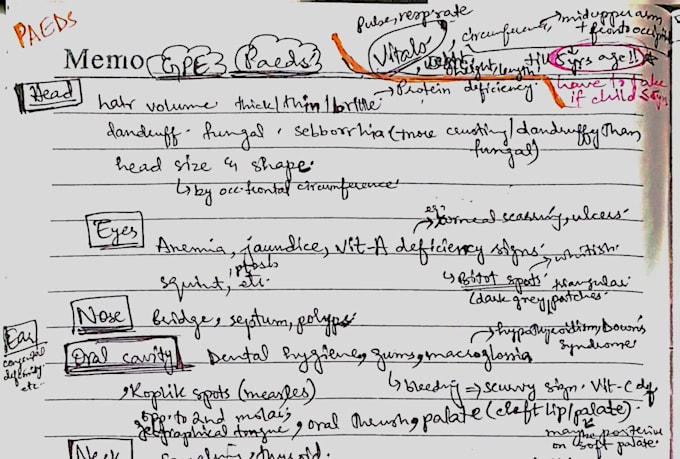 PAEDS
Memo GPE Paeds
Vitals
pulse, resp rate
circumference, → midupper arm
+ fronto occipital
height/length
till 5 yrs age!!
have to take
if child ≤ 5yrs
Head
hair volume thick/thin/brittle → Protein deficiency.
dandruff. fungal. sebborrhia (more crusting/dandruffy than
fungal)
head size & shape.
↳ by occ. frontal circumference
Eyes
Anemia, jaundice, Vit-A deficiency signs.
eg: corneal scarring, ulcers.
squint, ptosis, etc.
↳ Bitot spots. → whitish.
triangular
(dark grey) patches.
Nose Bridge, septum, polyps.
Ear
congenital
deformity
etc.
Oral cavity Dental hygiene, gums, macroglossia
→ hypothyroidism, Down's
syndrome
↳ bleeding → scurvy sign. Vit-C def
, Koplik spots (measles)
opp. to 2nd molar,
geographical tongue, oral thrush, palate (cleft lip/palate).
maybe posterior
on soft palate.
Neck thyroid.